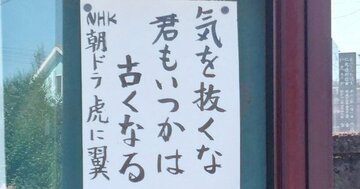 気を抜くな
君もいつかは
古くなる
NHK
朝ドラ虎に翼